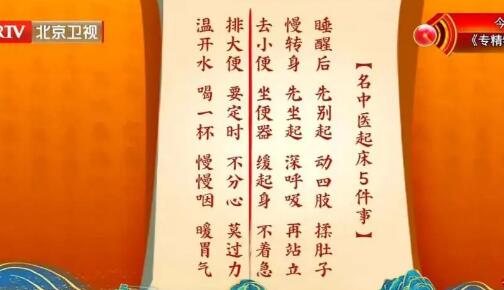 RTV 北京卫视
今
《专精
【名中医起床5件事】
睡醒后 先别起 动四肢 揉肚子
慢转身 先坐起 深呼吸 再站立
去小便 坐便器 缓起身 不着急
排大便 要定时 不分心 莫过力
温开水 喝一杯 慢慢咽 暖胃气